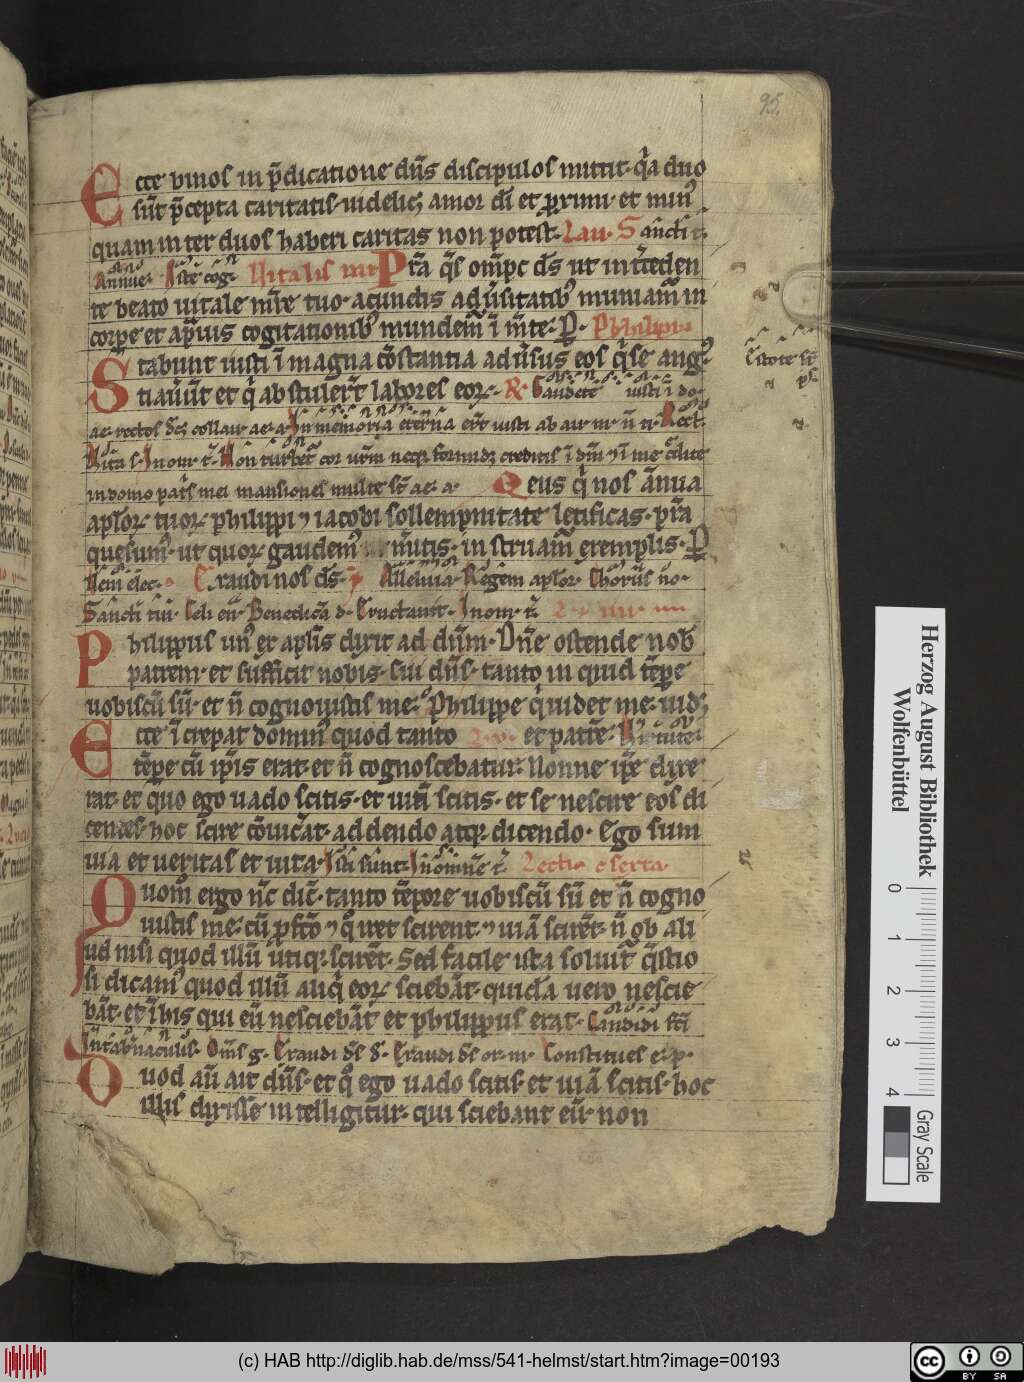 95.
Ecce binos in p̄dicatione dn̄s discipulos mittit. q̄a duo
sūt p̄cepta caritatis. uidelicꝫ amor dī et ꝓximi. et min9
quam inter duos haberi caritas non potest. Lau. Sancti t.
Annue. Iste cog. Uitalis mr Pr̄a q̄s omp̄c ds̄ ut int̄ceden
te beato uitale mr̄e tuo. a cunctis adūsitatib9 muniam̄ in
corpe et a prauis cogitationib9 mundem̄ ī m̄te. P. Philippi
Stabunt iusti ī magna cōstantia adūsus eos q̄ se ang9
tiauūt et q̄ abstulerūt labores eoꝝ. R. Gaudete iusti ī do.
ae. rectos dec̄ collau. ae. a. In memoria et̄na ert̄ iusti ab au. m. n̄ ti. Rect.
Uita s. In om. t. Non turbet̄ cor ur̄m neqꝫ formidꝫ creditis ī dm̄ ⁊ ī me c̄dite
in domo patris mei mansiones multe st̄ ae. a. Deus q̄ nos ānua
aploꝝ tuoꝝ philippi ⁊ iacobi sollempnitate letificas. pr̄a
quesum9. ut quoꝝ gaudem9 m̄itis. instruam̄ exemplis. P
Exaudi nos ds̄. Alleluia. Regem aploꝝ. Chorus no.
Sancti tui. Celi en̄. Benedicā d. Eructauit. In om. t.
Philippus un9 ex aplis dixit ad dn̄m. Dn̄e ostende nob
patrem. et sufficit nobis. Cui dn̄s. tanto inquid tēpe
uobiscū sū. et n̄ cognouistis me. Philippe q̄ uidet me. uidꝫ
Ecce īcrepat domin9 quod tanto et patrē. Uirtute.
tēpe cū ip̄is erat. et n̄ cognoscebatur. Nonne ip̄e dixe
rat. et quo ego uado scitis. et uiā scitis. et se nescire eos di
centes. hoc scire cōuīcāt. addendo atqꝫ dicendo. Ego sum
uia et ueritas et uita. Isti sunt. In omnē t. Lectio
Quom̄ ergo nc̄ dic̄. tanto tēpore uobiscū sū et n̄ cogno
uistis me. cū ꝓfc̄o ⁊ quo iret scirent. ⁊ uiā scirēt. n̄ ob ali
ud nisi quod illū utiqꝫ scirēt. Sed facile ista soluit̄ q̄stio
si dicam9 quod illū aliq̄ eoꝝ sciebāt. quidā uero nescie
bāt. et ī his qui eū nesciebāt et philippus erat. Candidi fc̄i
In tab̄naculis. Om̄s g. Exaudi ds̄ d. Exaudi ds̄ or. m. Constitues e. p.
Quod aū ait dn̄s. et quo ego uado scitis. et uiā scitis. hoc
illis dixisse intelligitur. qui sciebant eū. non
Herzog August Bibliothek
Wolfenbüttel
0 1 2 3 4
Gray Scale
(c) HAB http://diglib.hab.de/mss/541-helmst/start.htm?image=00193
cc BY SA